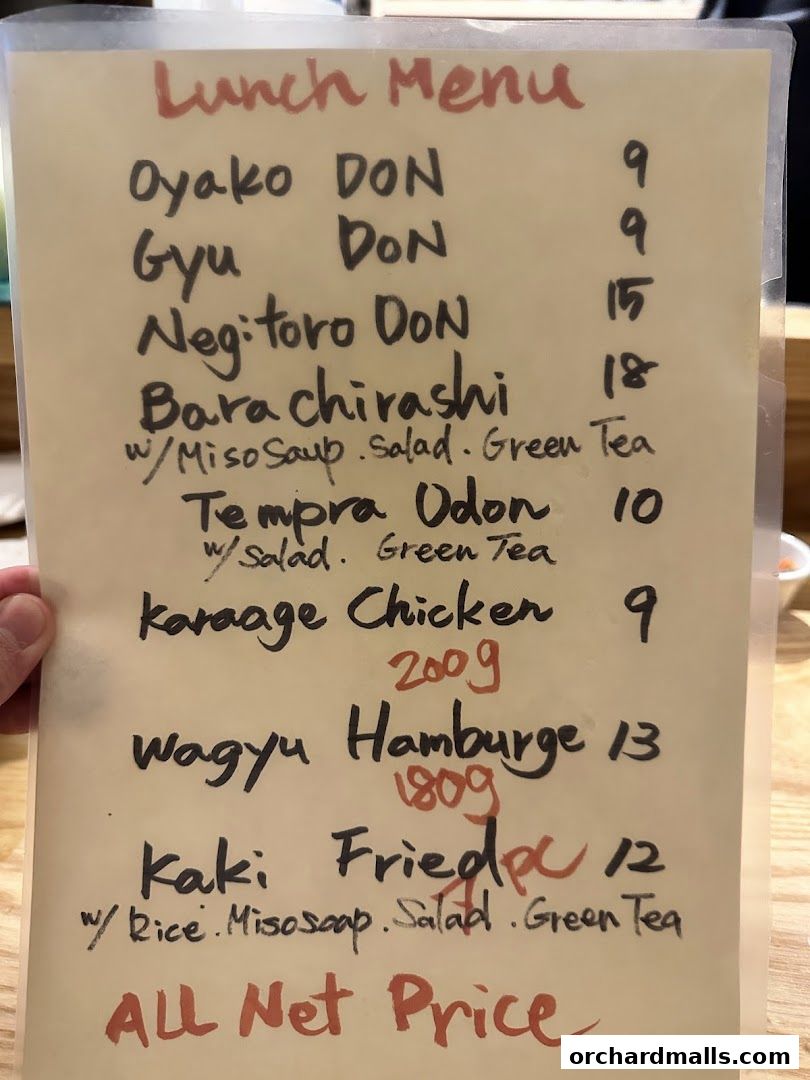 Lunch Menu
Oyako DON 9
Gyu DON 9
Negitoro DON 15
Barachirashi 18
w/ Miso Soup . Salad . Green Tea
Tempra Udon 10
w/ Salad . Green Tea
Karaage Chicken 9
200g
Wagyu Hamburge 13
180g
Kaki Fried 7pc 12
w/ Rice . Miso soap . Salad . Green Tea
ALL Net Price
orchardmalls.com